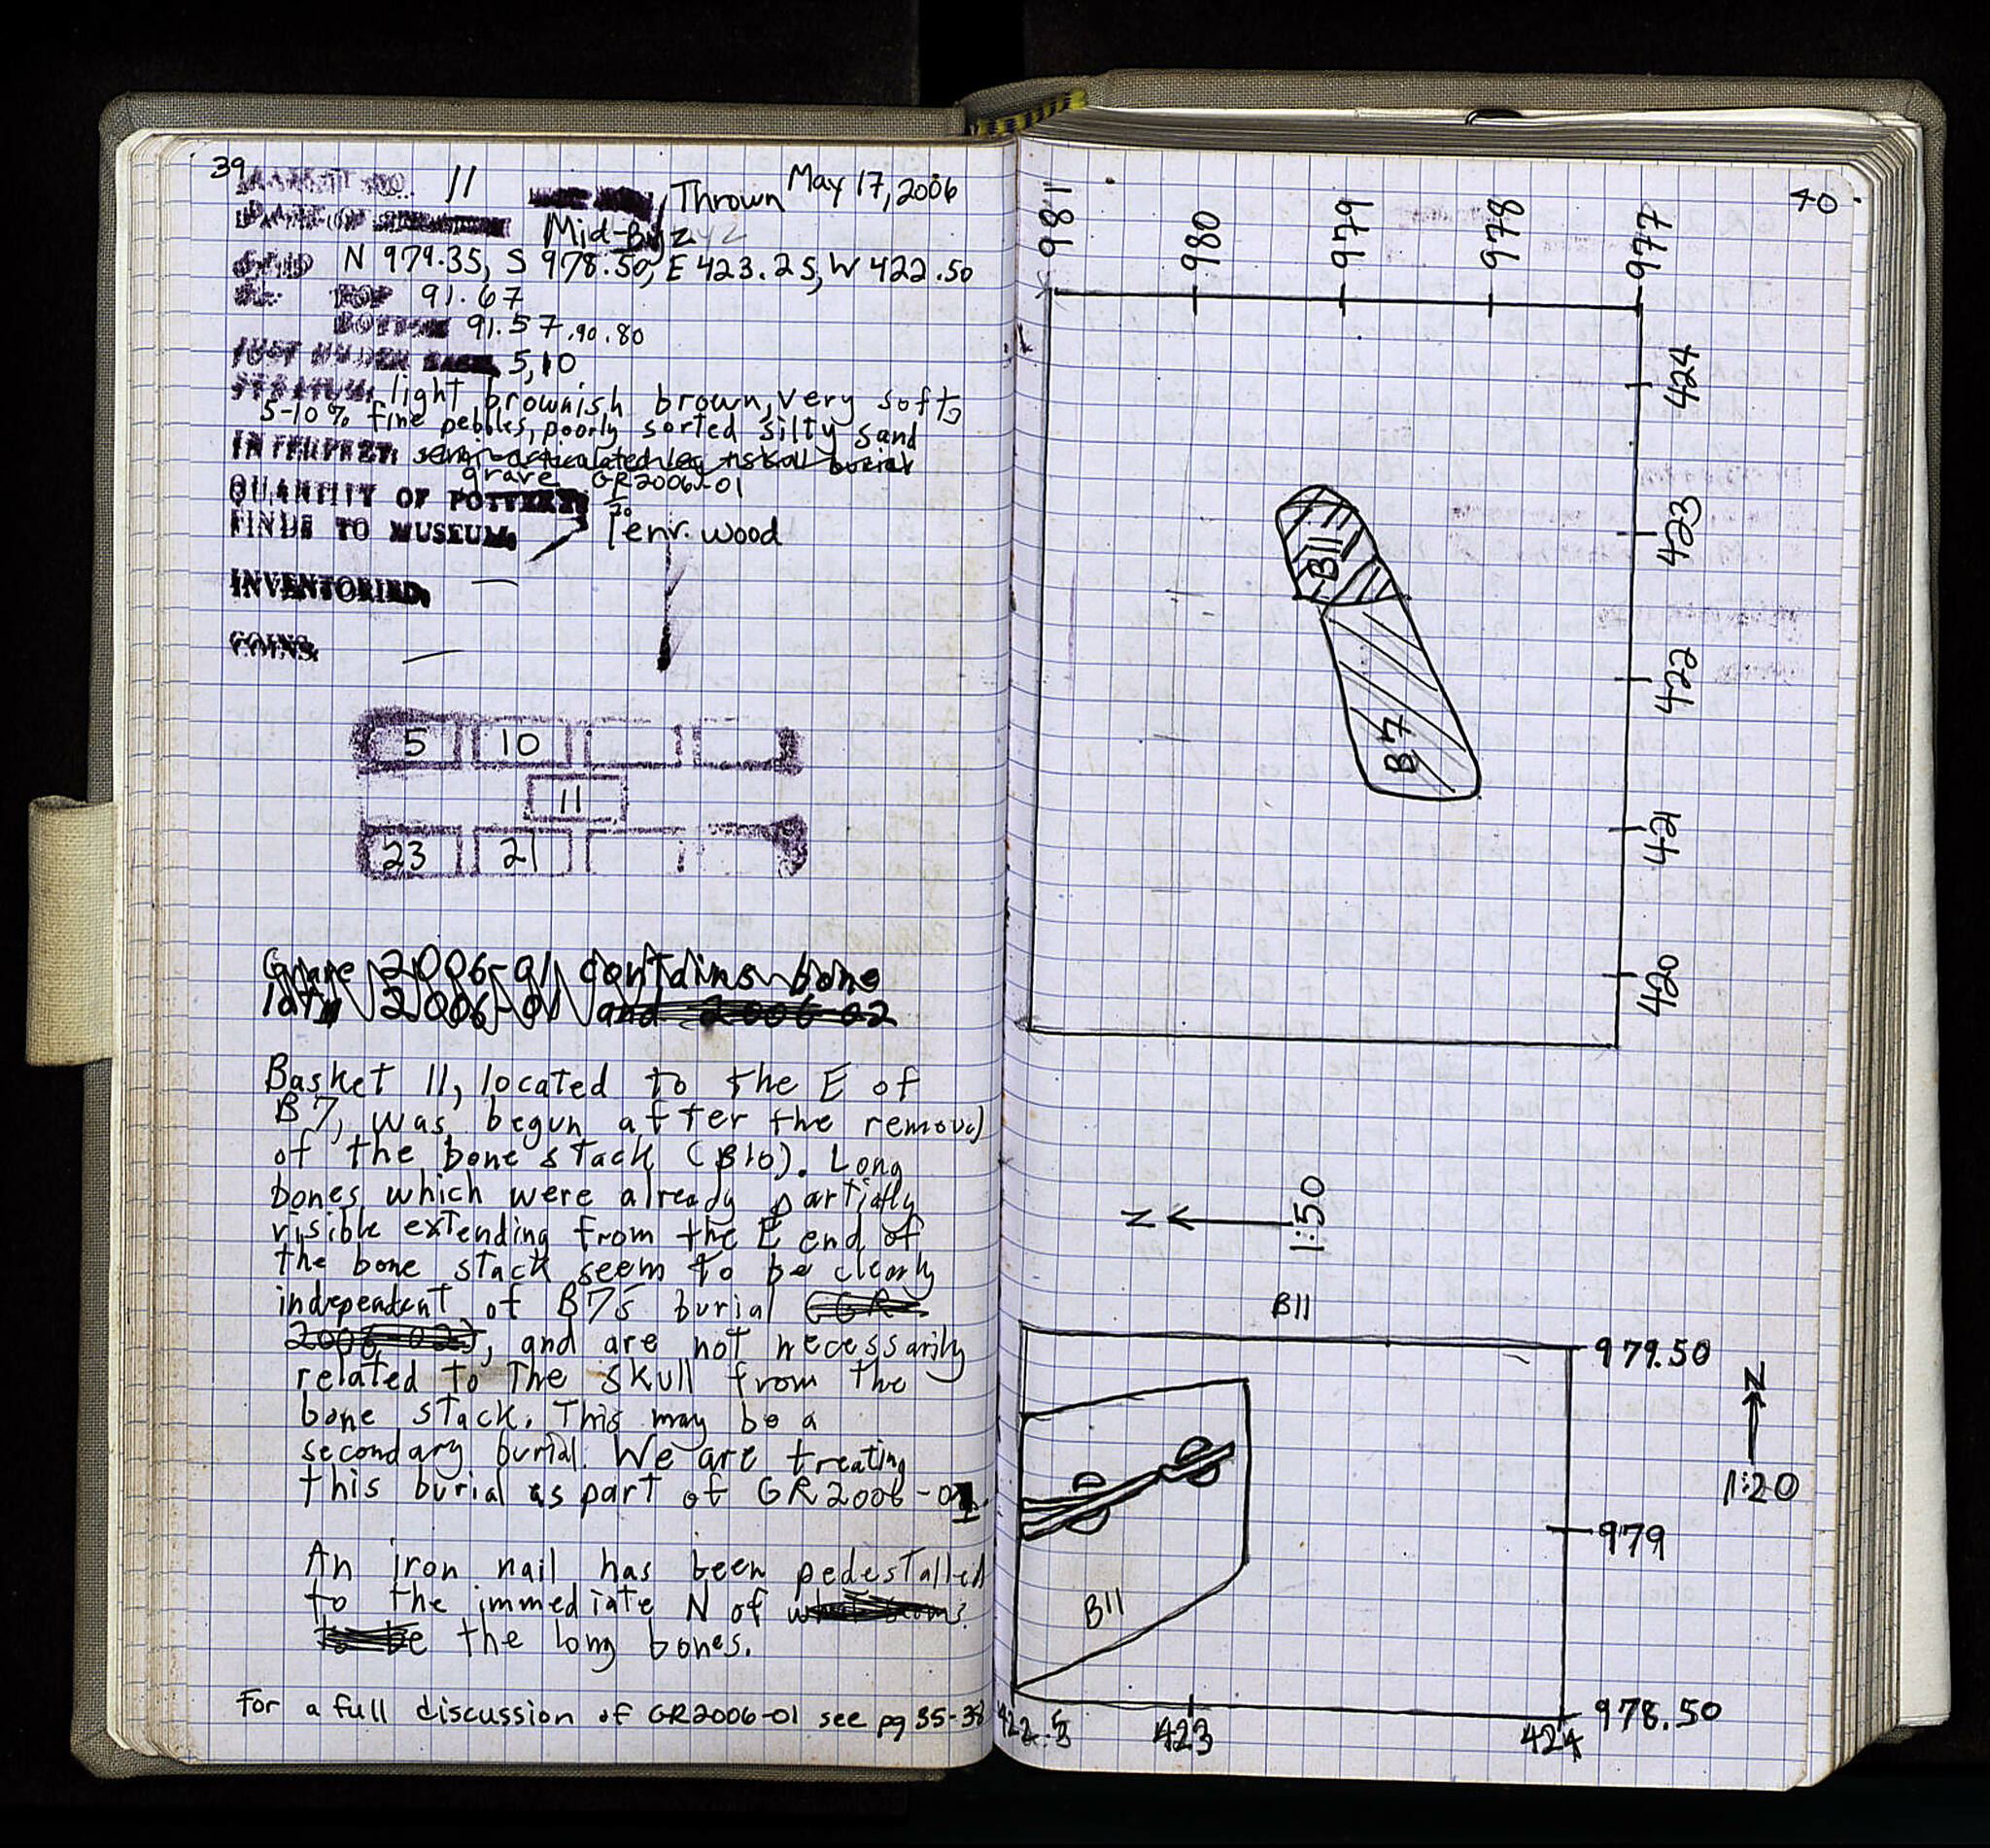 39
BASKET NO. 11 Thrown May 17, 2006
Mid-Byz
GRID N 979.35, S 978.50, E 423.25, W 422.50
EL. TOP 91.67
BOTTOM 91.57, 90.80
JUST UNDER BASK. 5,10
STRATUM: light brownish brown, very soft,
5-10% fine pebbles, poorly sorted silty sand
INTERPRET: semi-articulated leg + skull burial
grave GR2006-01
QUANTITY OF POTTERY:
FINDS TO MUSEUM. 1 env. wood
INVENTORIED. —
COINS. —
5 10
11
23 21
Grave 2006-01 contains bone
lots 2006-01 and 2006-02
Basket 11, located to the E of
B7, was begun after the removal
of the bone stack (B10). Long
bones which were already partially
visible extending from the E end of
the bone stack seem to be clearly
independent of B7's burial (GR
2006-02), and are not necessarily
related to the skull from the
bone stack. This may be a
secondary burial. We are treating
this burial as part of GR2006-01.
An iron nail has been pedestalled
to the immediate N of what seems
to be the long bones.
For a full discussion of GR2006-01 see pg 35-38
40
981 980 979 978 977
424
423
422
421
420
B11
B7
N
1:50
B11
979.50
N
1:20
979
B11
978.50
422.5 423 424